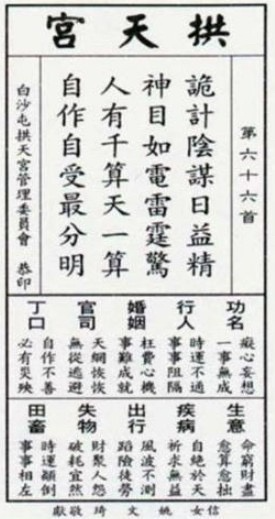 拱天宮
第六十六首
詭計陰謀日益精
神目如電雷霆驚
人有千算天一算
自作自受最分明
白沙屯拱天宮管理委員會 恭印
功名
癡心妄想
一事無成
行人
時運不通
事事阻隔
婚姻
枉費心機
事難成就
官司
天網恢恢
無從逃避
丁口
自作不善
必有災殃
生意
命窮財盡
愈富愈拙
疾病
自絕於天
祈求無益
出行
風波不測
蹈險徒勞
失物
財聚人怨
破耗宜然
田畜
時運顛倒
事事相左
信女 姚文琦 敬獻